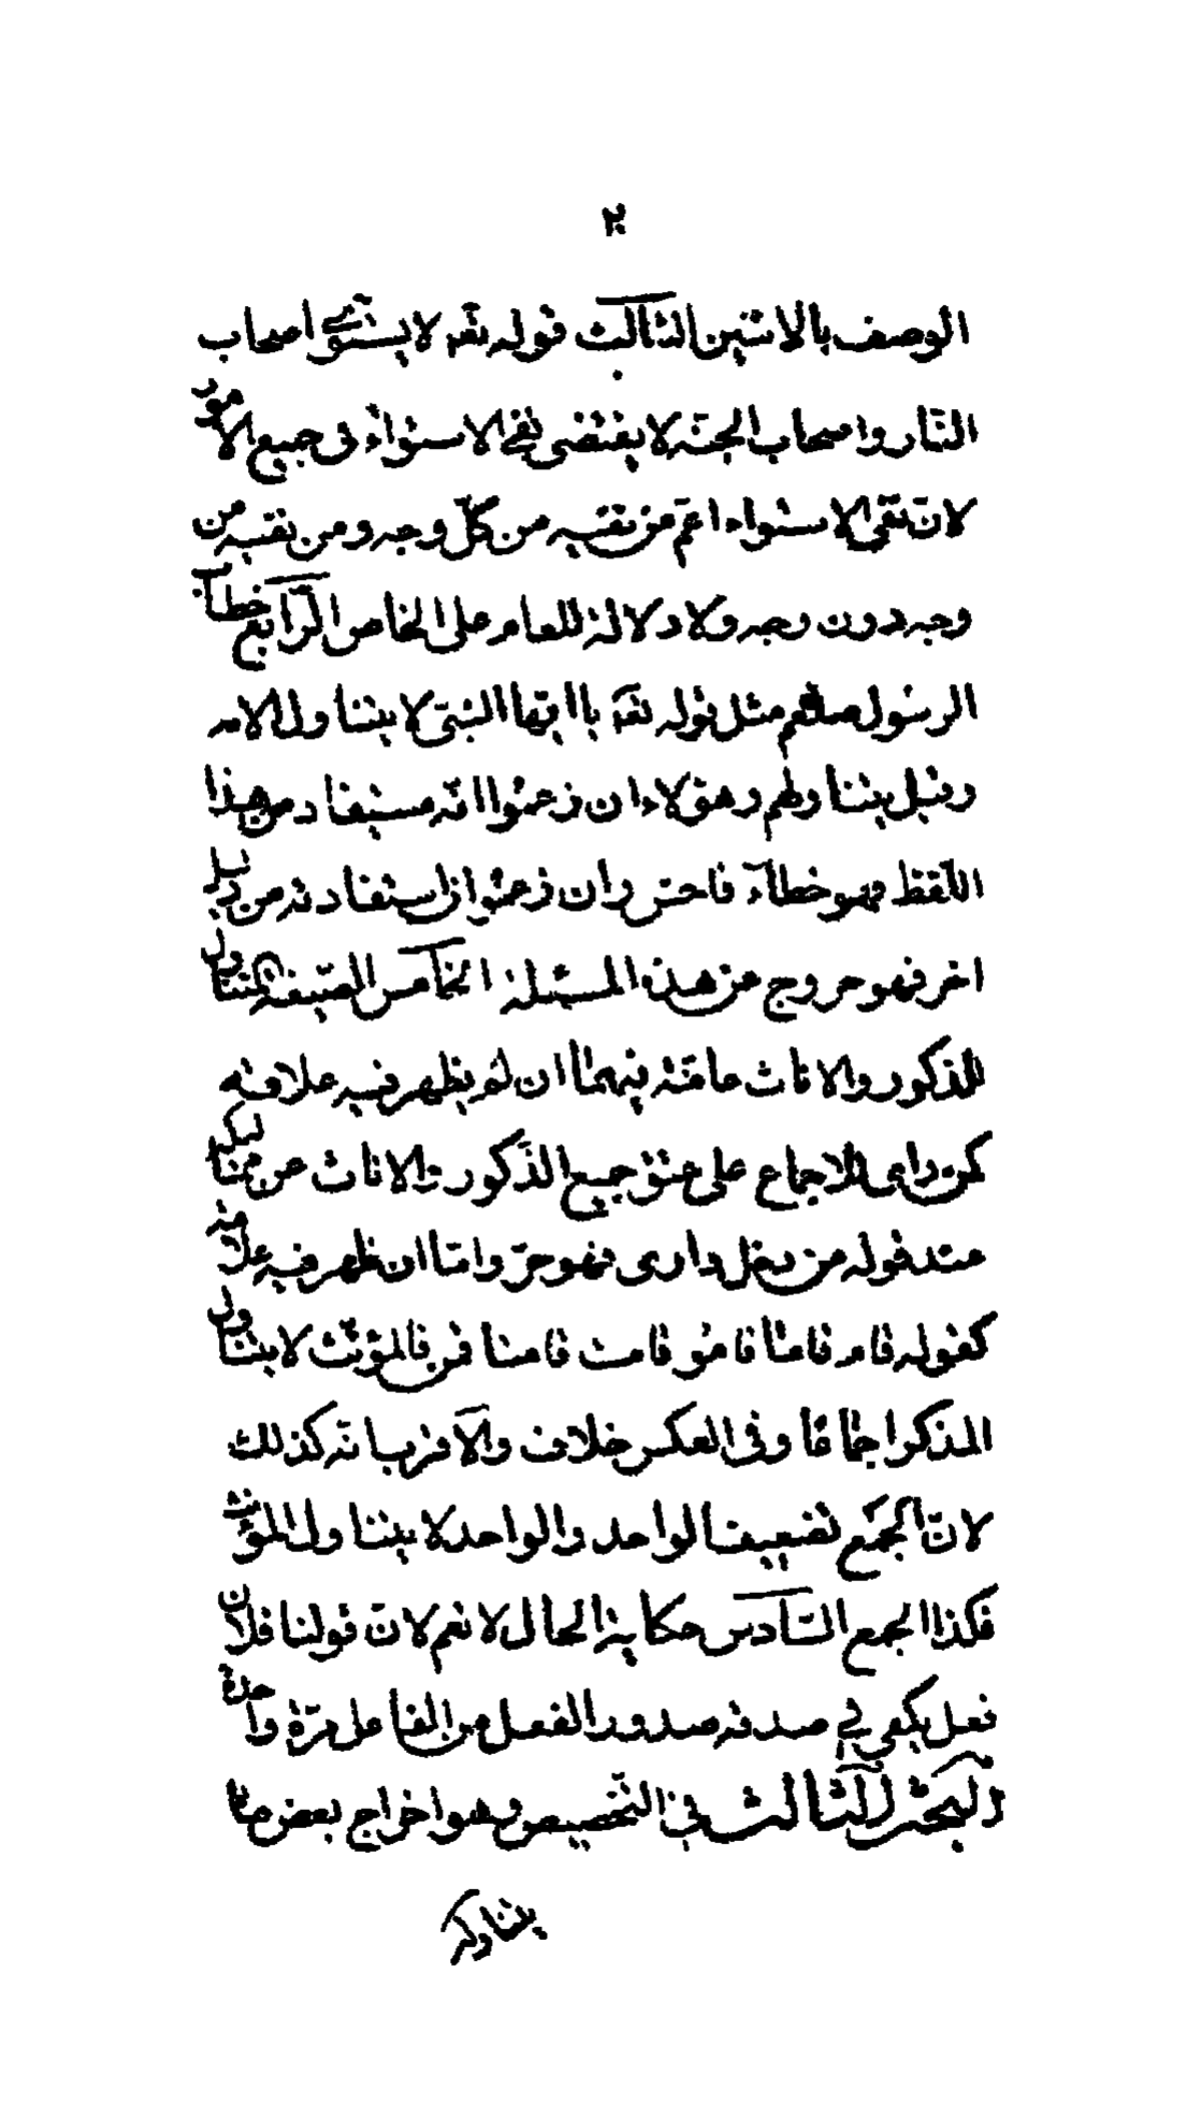 ٢٠
الوصف بالاثنين الثالث قوله تعه لا يستوى اصحاب
النار واصحاب الجنة لا يقتضى نفى الاستواء فى جميع الامور
لان نفى الاستواء اعم من نفيه من كل وجه ومن نفيه من
وجه دون وجه ولا دلالة للعام على الخاص الرابع خطاب
الرسول صلعم مثل قوله تعه يا ايها النبى لا يتناول الامه
وقيل يتناولهم وهؤلاء ان زعموا انه مستفاد من هذا
اللفظ فهو خطآء فاحش وان زعموا استفادته من دليل
اخر فهو خروج عن هذه المسئلة الخامس الصيغة المتناول
للذكور والاناث عامة فيهما ان لم يظهر فيه علامة
كمن راى للاجماع على عتق جميع الذكور والاناث من مماليكه
عند قوله من دخل دارى فهو حر واما ان ظهر فيه علامة
كقوله قام قاما قاموا قامت قامتا قمن فالمؤنث لا يتناول
المذكر اجماعا وفى العكس خلاف والاقرب انه كذلك
لان الجمع تضعيف الواحد والواحد لا يتناول المؤنث
فكذا الجمع السادس حكاية الحال لا تعم لان قولنا فلان
فعل يكفى فى صدقه صدور الفعل من الفاعل مرة واحدة
البحث الثالث فى التخصيص وهو اخراج بعض ما
يتناوله